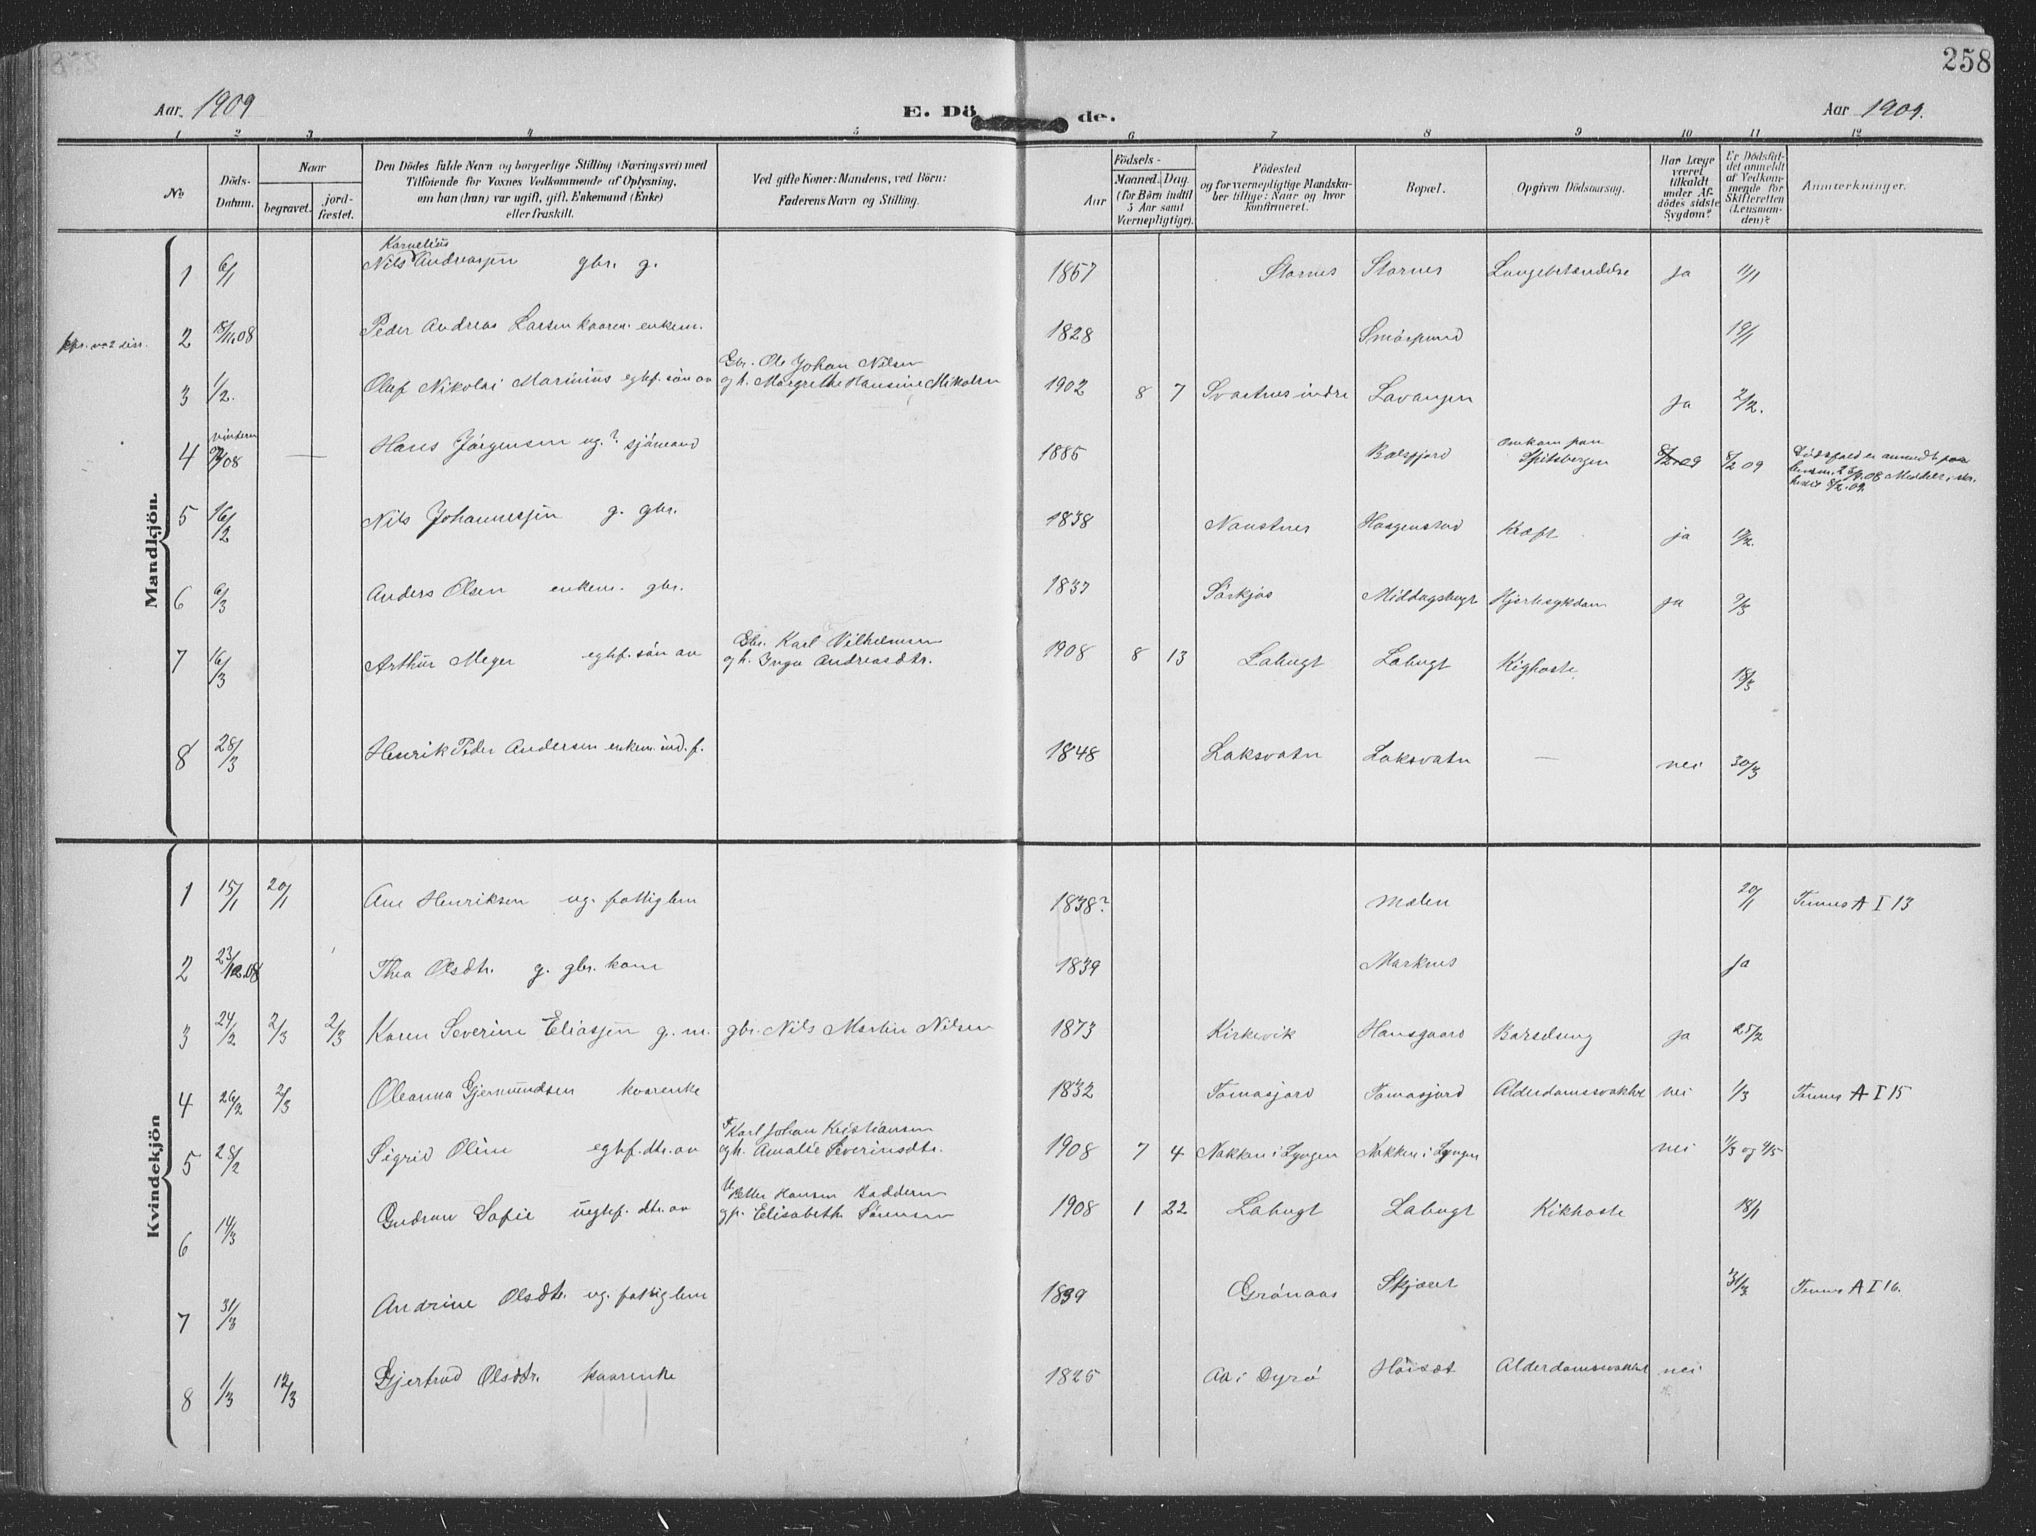 258
Aar 1909
E. Dö de.
Aar 1909.
1 2 3 4 5 6 7 8 9 10 11 12
No
Döds-
Datum.
Naar
begravet.
jord-
fæstet.
Den Dödes fulde Navn og borgerlige Stilling (Næringsvei) med
Tilföiende for Voxnes Vedkommende af Oplysning,
om han (hun) var ugift, gift, Enkemand (Enke)
eller fraskilt.
Ved gifte Koner: Mandens, ved Börn:
Faderens Navn og Stilling.
Födsels-
Aar
Maaned. Dag.
(for Börn indtil
5 Aar samt
Værnepligtige).
Födested
og for værnepligtige Mandska-
ber tillige: Naar og hvor
konfirmeret.
Bopæl.
Opgiven Dödsaarsag.
Har Læge
været
tilkaldt
under Af-
dödes sidste
Sygdom?
Er Dödsfal-
det anmeldt
af Vedkom-
mende for
Skifteretten
(Lensman-
den)?
Anmærkninger.
Mandkjön.
Kornelius
1 6/1 Nils Andreassen gbr. g. 1857 Stornes Stornes Lungebetændelse ja 11/1
2 18/11.08 Peder Andreas Larsen kaaren. enkem. 1828 Smörsund 19/1
Gbr. Ole Johan Nilsen
3 1/2. Oluf Nikolai Marinius egtef. sön av og h. Margrethe Hansine Nikolsen 1902 8 7 Svartnes indre Lavangen ja 2/2.
vinteren
4 08 Hans Jörgensen ug.? sjömand 1885 Balsfjord Omkom paa
Spitsbergen 8/2.09 8/2 09 Dödsfald er anmeldt
5 16/2 Nils Johannessen g. gbr. 1838 Naustnes Haagenstad Kræft ja 17/2.
6 6/3 Anders Olsen enkem. gbr. 1837 Sörkjos Middagsbugt Hjertesykdom ja 9/3
Gbr. Karl Vilhelmsen
7 16/3 Arthur Meyer egtef. sön av og h. Inga Andreasdtr. 1908 8 13 Labugt Labugt Kighoste. 18/3
8 28/3 Henrik Peder Andersen enkem. ind. f. 1848 Laksvatn Laksvatn — nei 30/3
Kvindekjön
1 15/1 20/1 Ane Henriksen ug. fattiglem 1838? Mælen 20/1 Tennes A I 13
2 23/12.08 Thea Olsdtr. g. gbr. kone 1839 Marknes ja
3 24/2 2/3 2/3 Karen Severine Eliassen g. m. gbr. Nils Martin Nilsen 1873 Kirkevik Hansgaard Barselseng ja 25/2
4 26/2 2/3 Oleanna Gjermundsen kaarenke 1832 Tomasjord Tomasjord Alderdomssvakhet nei 1/3 Tennes A I 15
Karl Johan Kristiansen
5 28/2 Sigrid Oline egtef. dtr. av og h. Amalie Severinsdtr. 1908 7 4 Nakken i Lyngen Nakken i Lyngen nei 1/3 og 4/5
Petter Hansen Badderen
6 14/3 Gudrun Sofie uegtef. dtr. av og p. Elisabeth Sörensen 1908 1 22 Labugt Labugt Kikhoste 18/1
7 31/3 Andrine Olsdtr. ug. fattiglem 1839 Grönaas Skjæret 31/3 Tennes A I 16.
8 1/3 12/3 Gjertrud Olsdtr. kaarenke 1825 Aa i Dyrö Höiset Alderdomssvakhet nei